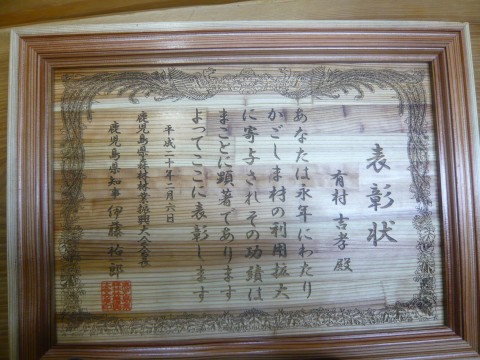 表彰状
有村 吉孝 殿
あなたは永年にわたり
かごしま材の利用拡大
に寄与されその功績は
まことに顕著であります
よってここに表彰します
平成二十年二月六日
鹿児島県林材業振興大会会長
鹿児島県知事 伊藤 祐一郎